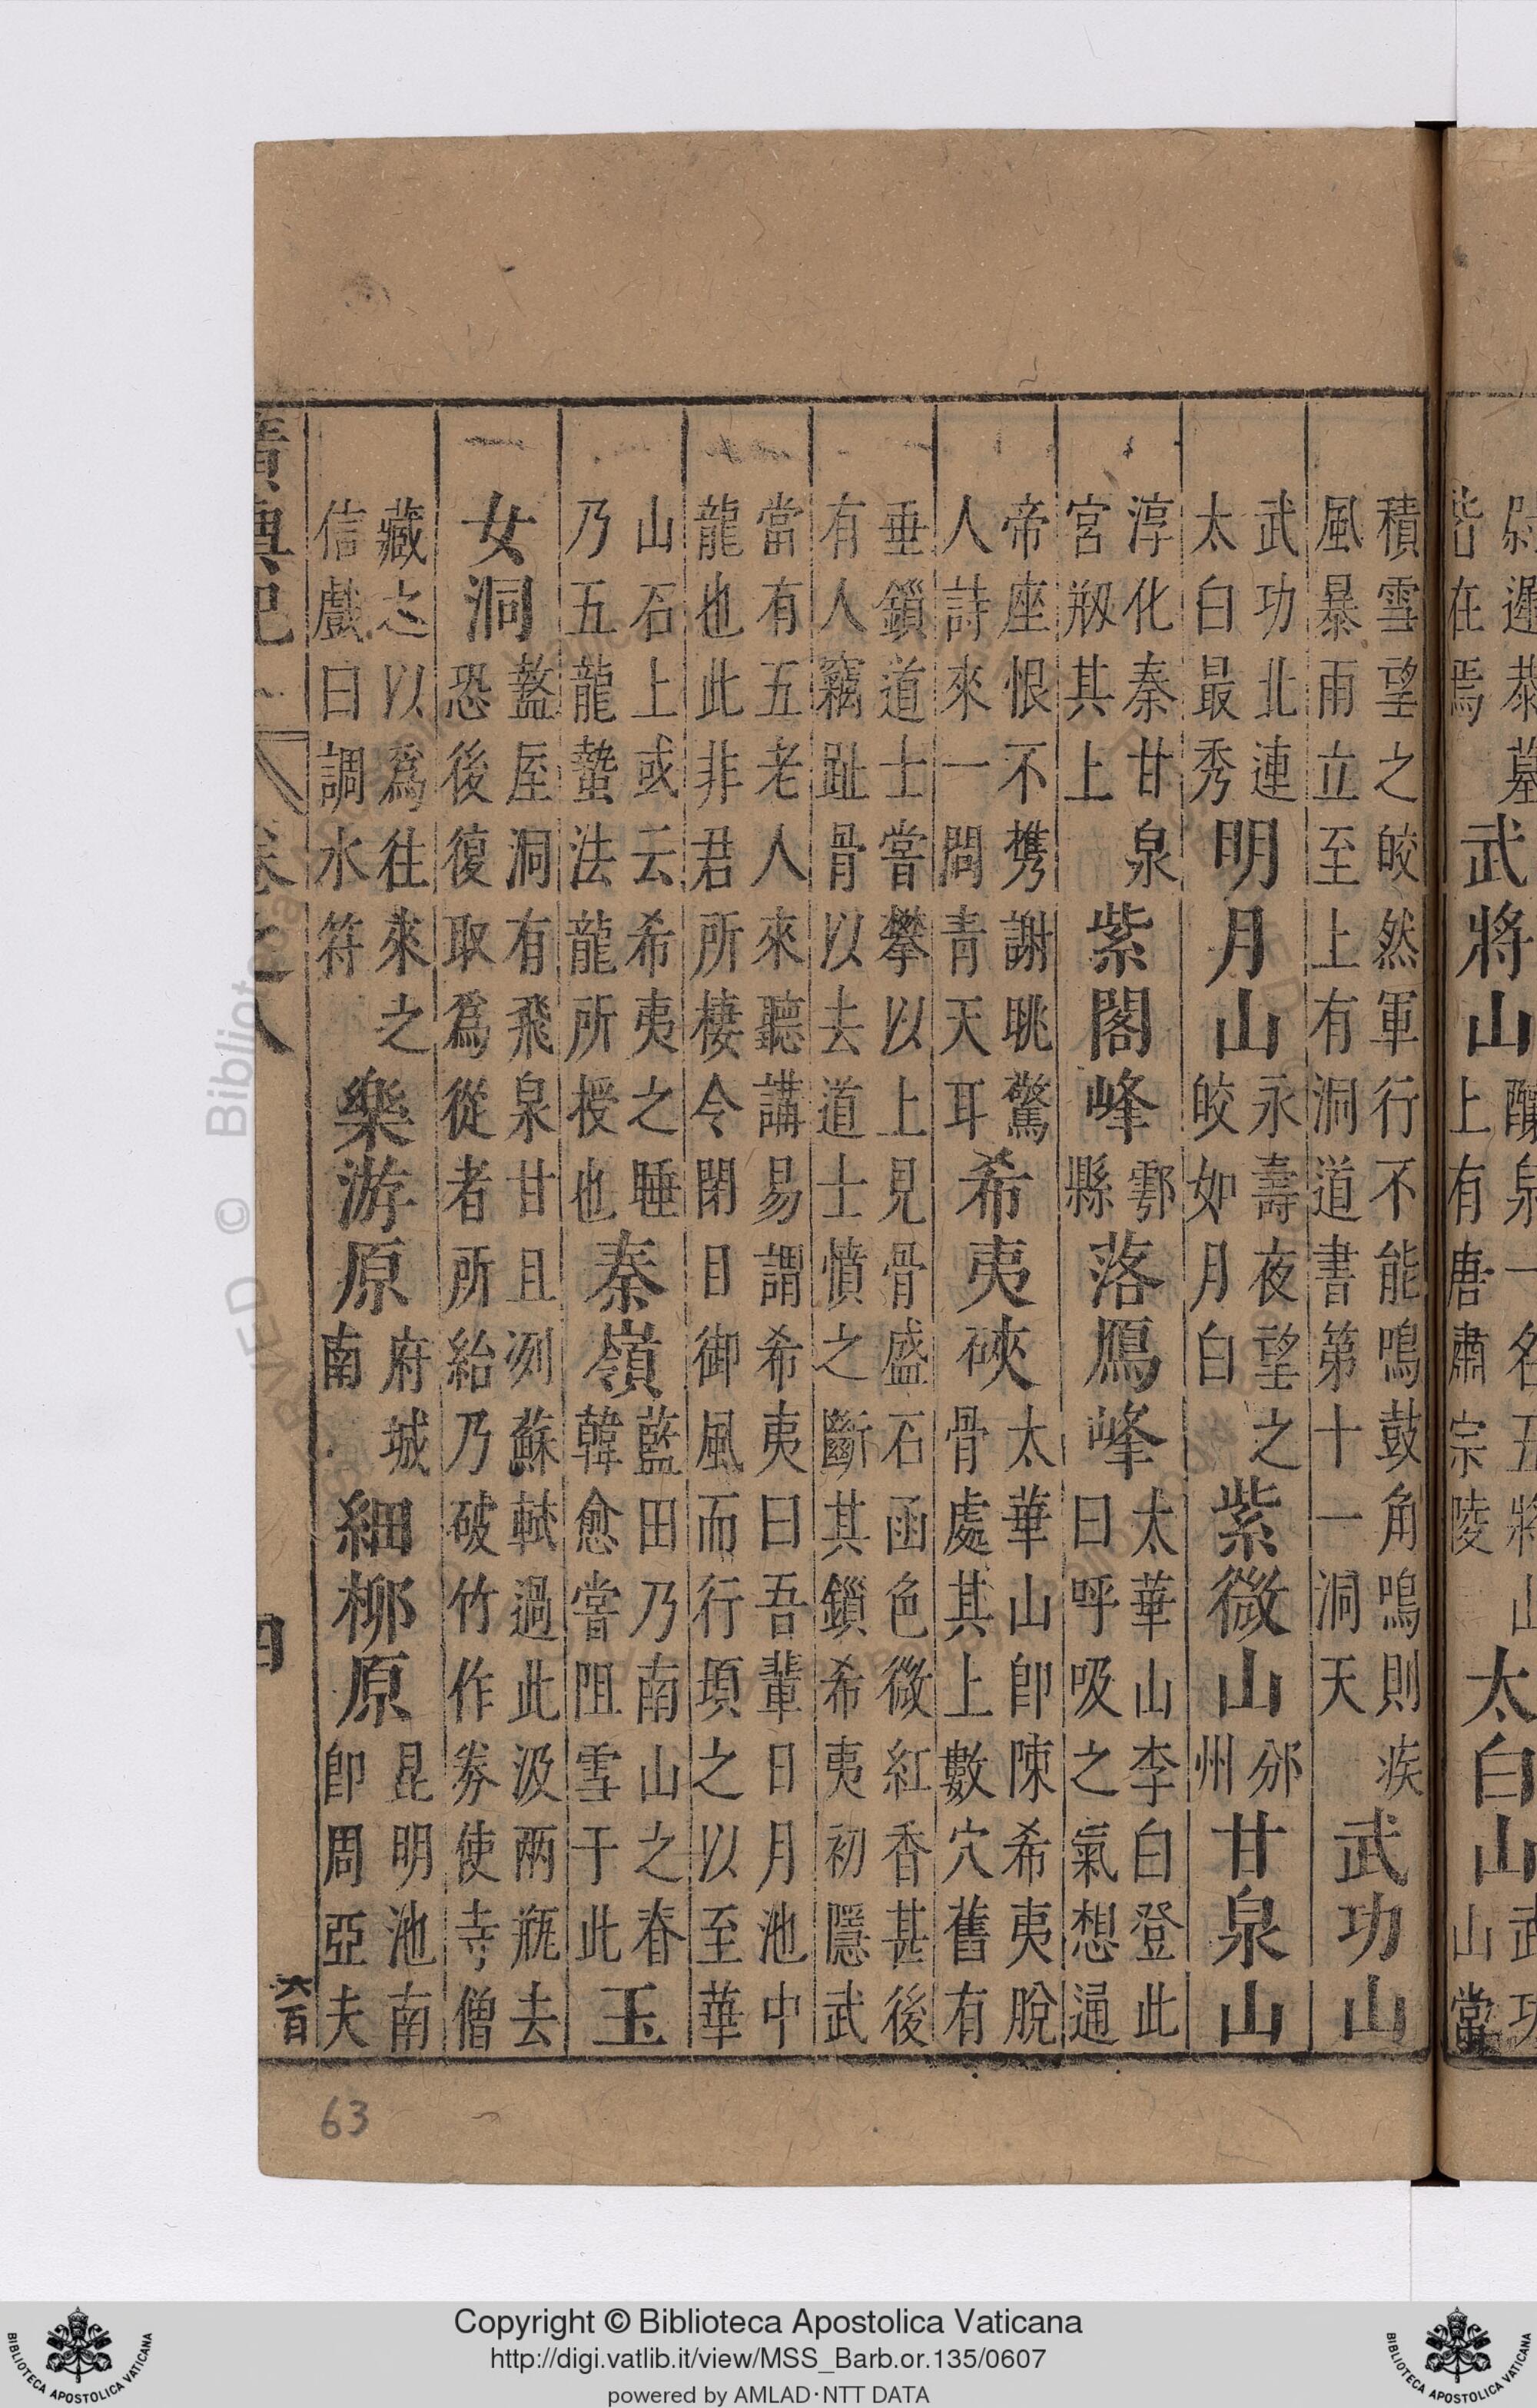 積雪望之皎然軍行不能鳴鼓角鳴則疾
風暴雨立至上有洞道書第十一洞天
武功山
武功北連
太白最秀
明月山
永壽夜望之
皎如月白
紫微山
邠州
甘泉山
淳化秦甘泉
宮剏其上
紫閣峰
鄠縣
落鴈峰
太華山李白登此
曰呼吸之氣想通
帝座恨不携謝眺驚
人詩來一問青天耳
希夷硤
太華山卽陳希夷脫
骨處其上數穴舊有
垂鎖道士嘗攀以上見骨盛石函色微紅香甚後
有人竊趾骨以去道士憤之斷其鎖希夷初隱武
當有五老人來聽講易謂希夷曰吾輩日月池中
龍也此非君所棲令閉目御風而行頃之以至華
山石上或云希夷之睡
乃五龍蟄法龍所授也
秦嶺
藍田乃南山之脊
韓愈嘗阻雪于此
玉
女洞
盩厔洞有飛泉甘且冽蘇軾過此汲兩瓶去
恐後復取爲從者所紿乃破竹作券使寺僧
藏之以爲往來之
信戲曰調水符
樂游原
府城
南
細柳原
昆明池南
卽周亞夫
卷之八
四
六百
63
Copyright © Biblioteca Apostolica Vaticana
http://digi.vatlib.it/view/MSS_Barb.or.135/0607
powered by AMLAD·NTT DATA
BIBLIOTECA APOSTOLICA VATICANA
BIBLIOTECA APOSTOLICA VATICANA